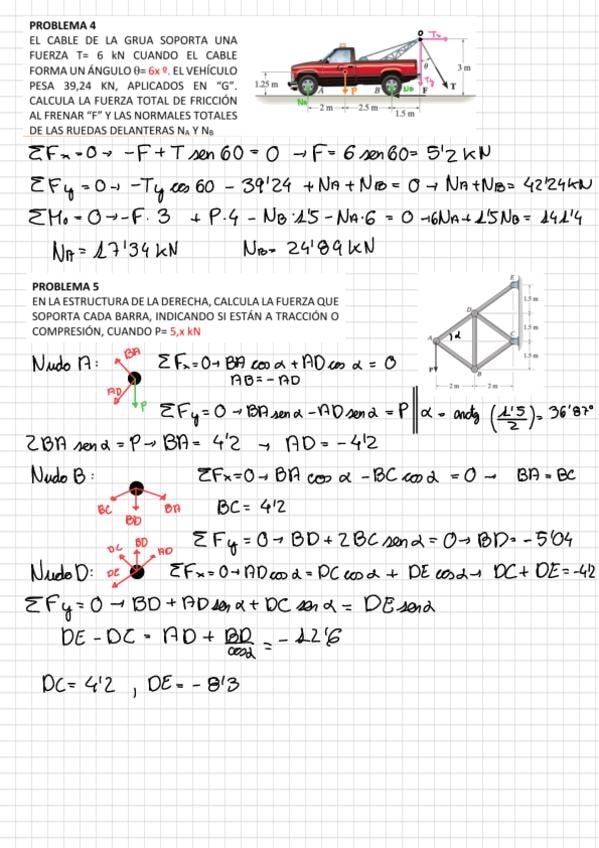 PROBLEMA 4
EL CABLE DE LA GRUA SOPORTA UNA
FUERZA T= 6 kN CUANDO EL CABLE
FORMA UN ÁNGULO θ= 6x º. EL VEHÍCULO
PESA 39,24 KN, APLICADOS EN "G".
CALCULA LA FUERZA TOTAL DE FRICCIÓN
AL FRENAR "F" Y LAS NORMALES TOTALES
DE LAS RUEDAS DELANTERAS NA Y NB
O Tx
θ
3 m
Ty
T
1.25 m
G
A
P
B
NA
NB
F
2 m
2.5 m
1.5 m
ΣFx=0→ -F+T sen 60 = 0 → F= 6 sen 60= 5'2 kN
ΣFy=0→ -Ty cos 60 - 39'24 + NA+NB = 0 → NA+NB= 42'24kN
ΣMo=0→-F·3 + P·4 - NB·1'5 - NA·6 = 0 →6NA+1'5NB= 141'4
NA = 17'34 kN NB= 24'89 kN
PROBLEMA 5
EN LA ESTRUCTURA DE LA DERECHA, CALCULA LA FUERZA QUE
SOPORTA CADA BARRA, INDICANDO SI ESTÁN A TRACCIÓN O
COMPRESIÓN, CUANDO P= 5,x kN
E
1.5 m
D
1.5 m
A
α
C
1.5 m
P
B
2 m
2 m
Nudo A:
BA
AD
P
ΣFx=0→BA cos α + AD cos α = 0
AB=-AD
ΣFy=0→BA sen α - AD sen α = P
α = arctg (1'5/2) = 36'87º
2BA sen α = P → BA= 4'2 → AD= -4'2
Nudo B:
BC
BD
BA
ΣFx=0→BA cos α - BC cos α = 0 → BA=BC
BC= 4'2
ΣFy=0→BD+2BC sen α = 0→BD=-5'04
Nudo D:
DC
BD
AD
DE
ΣFx=0→AD cos α = DC cos α + DE cos α→ DC+DE=-4'2
ΣFy=0→BD+AD sen α+DC sen α= DE sen α
DE - DC = AD + BD/cos α = -12'6
DC= 4'2 , DE= -8'3